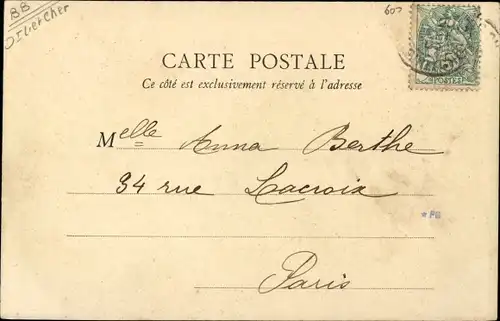 BB
Oisemcher
600
5
POSTES
CARTE POSTALE
Ce côté est exclusivement réservé à l'adresse
Melle Anna Berthe
34 rue Lacroix
*PB
Paris